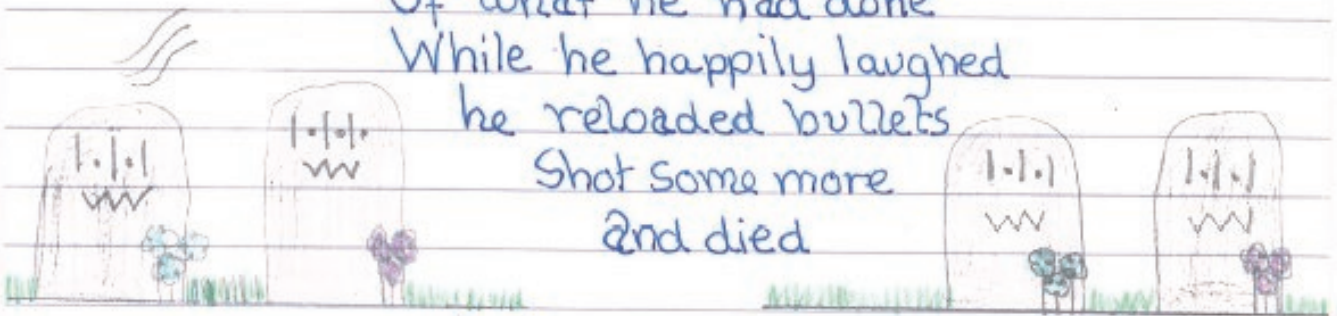 Of what he had done
While he happily laughed
he reloaded bullets
Shot some more
and died